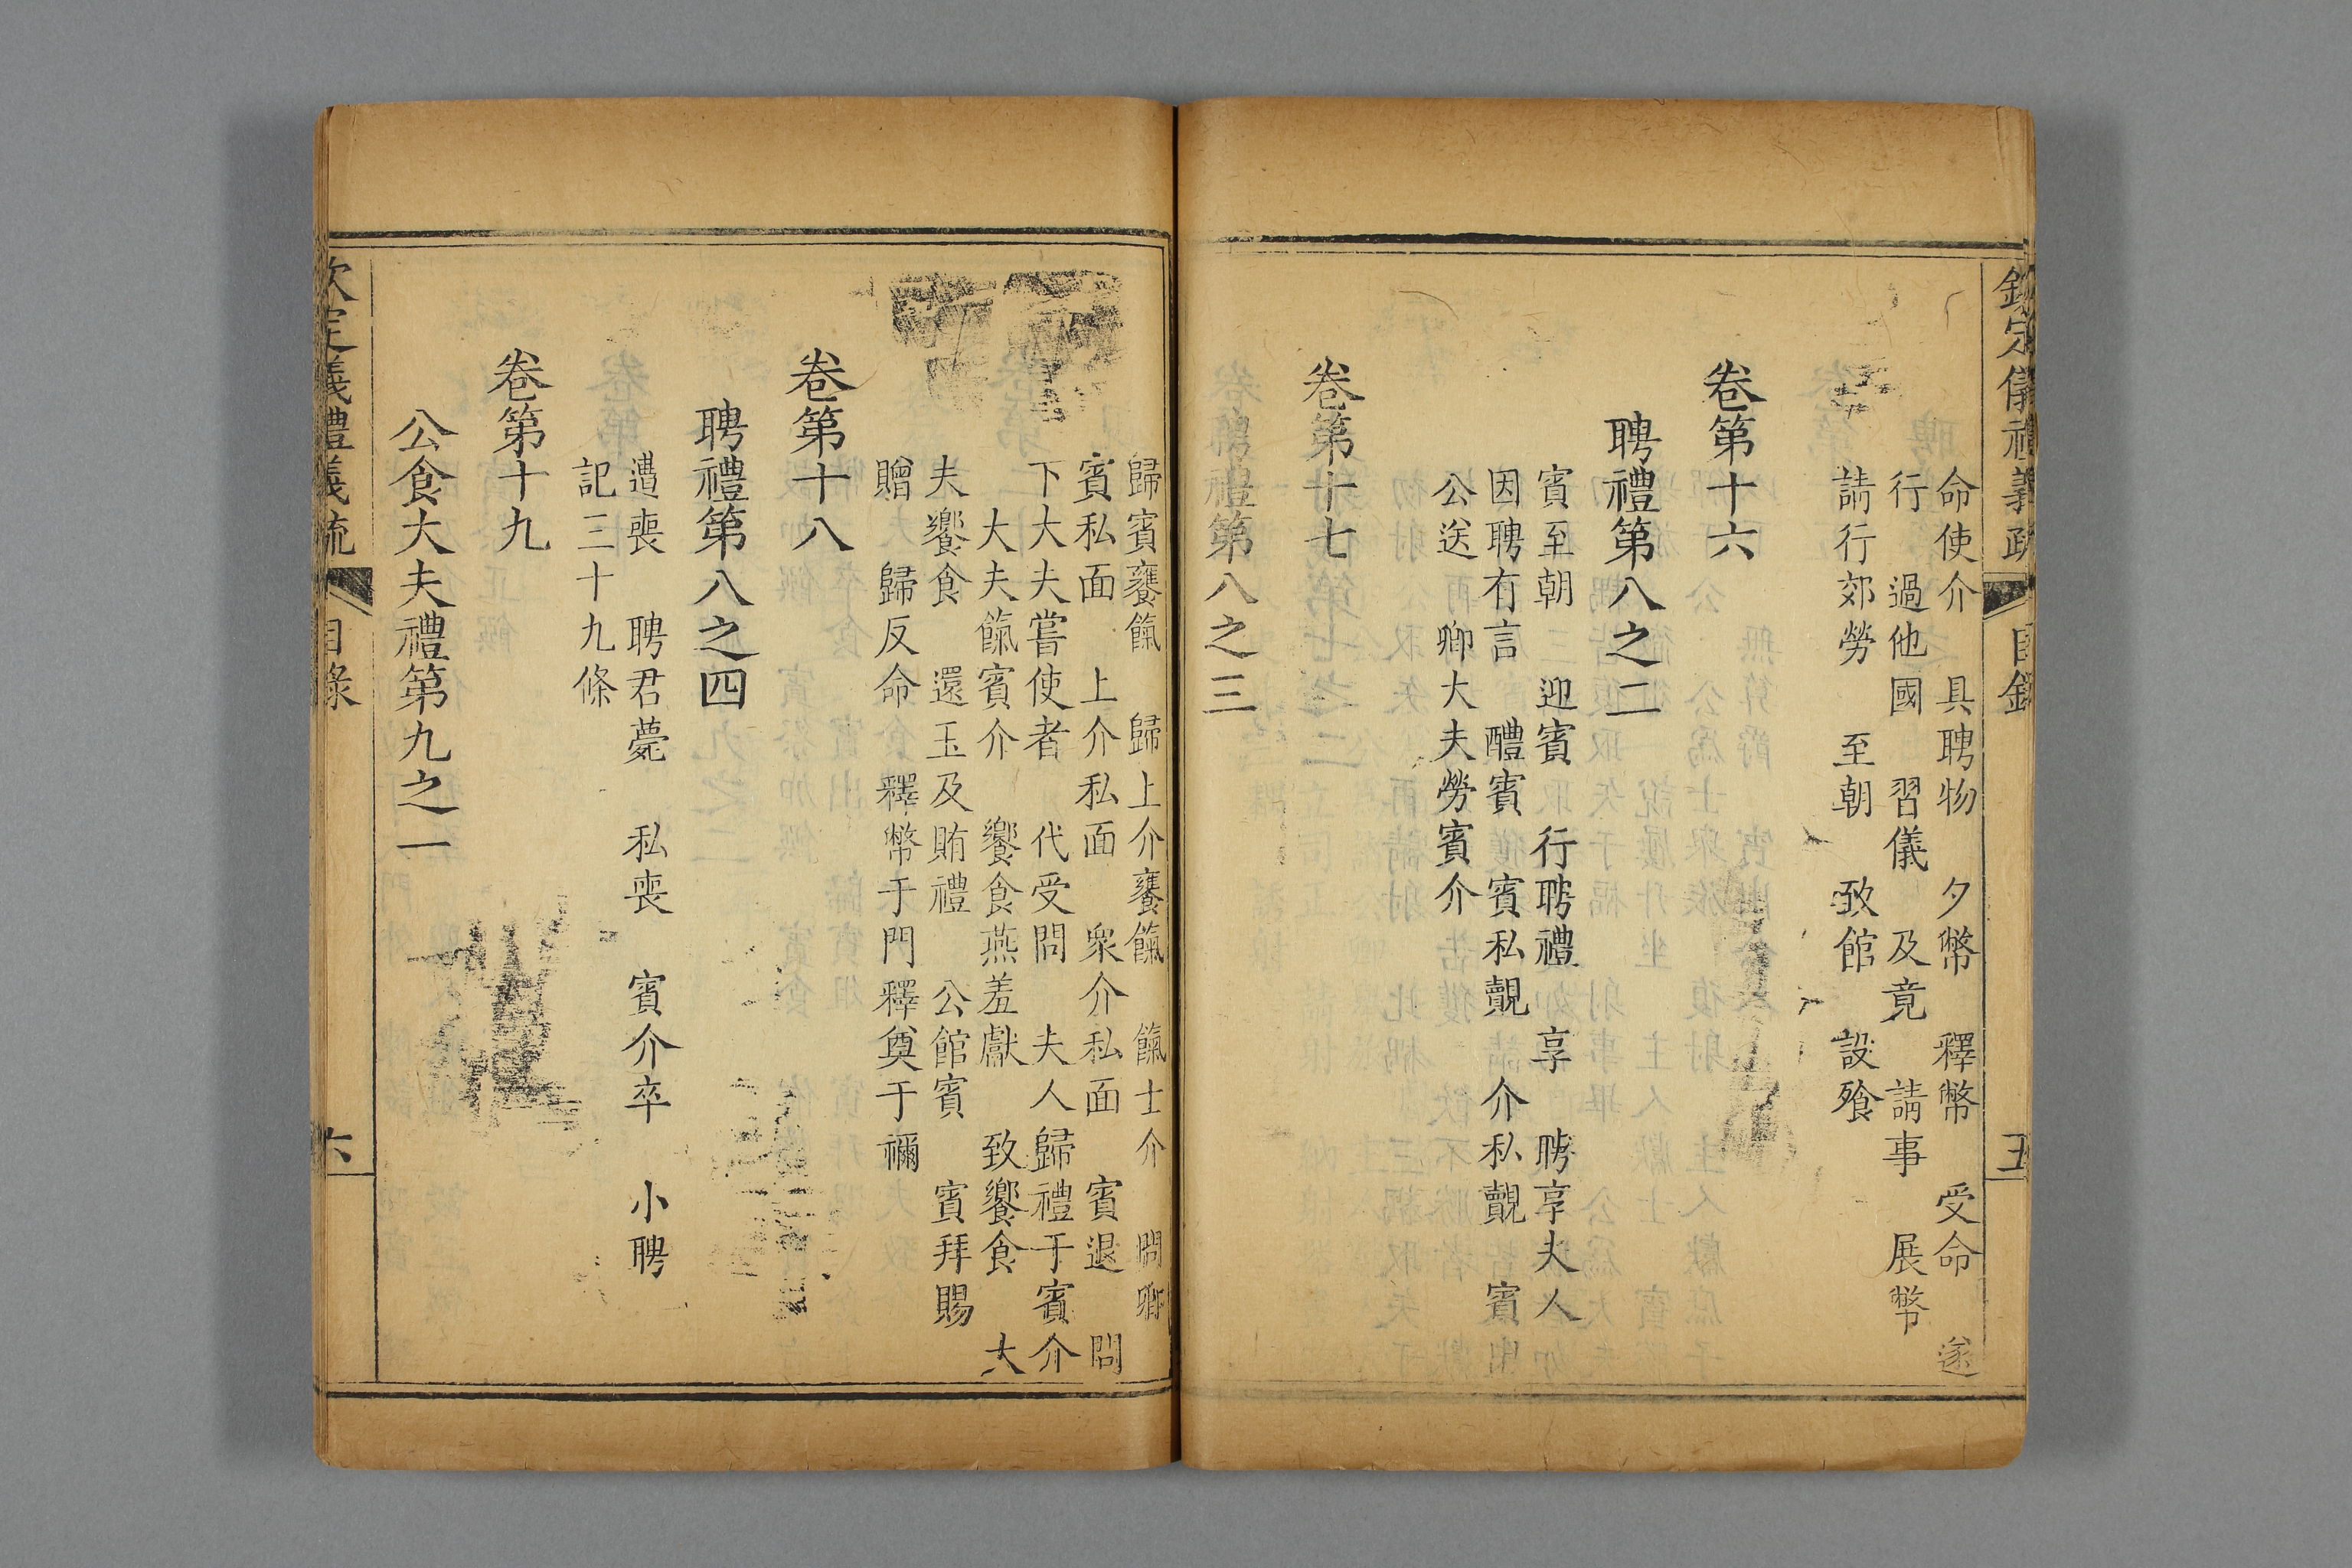 欽定儀禮義疏 目錄 五
命使介 具聘物 夕幣 釋幣 受命 遂
行 過他國 習儀 及竟 請事 展幣
請行郊勞 至朝 致館 設飧
卷第十六
聘禮第八之二
賓至朝 迎賓 行聘禮 享 聘享夫人
因聘有言 醴賓 賓私覿 介私覿 賓出
公送 卿大夫勞賓介
卷第十七
聘禮第八之三
歸賓饔餼 歸上介饔餼 餼士介 問卿
賓私面 上介私面 衆介私面 賓退 問
下大夫嘗使者 代受問 夫人歸禮于賓介
大夫餼賓介 饗食燕羞獻 致饗食 大
夫饗食 還玉及賄禮 公館賓 賓拜賜
贈 歸反命 釋幣于門釋奠于禰
卷第十八
聘禮第八之四
遭喪 聘君薨 私喪 賓介卒 小聘
記三十九條
卷第十九
公食大夫禮第九之一
欽定儀禮義疏 目錄 六